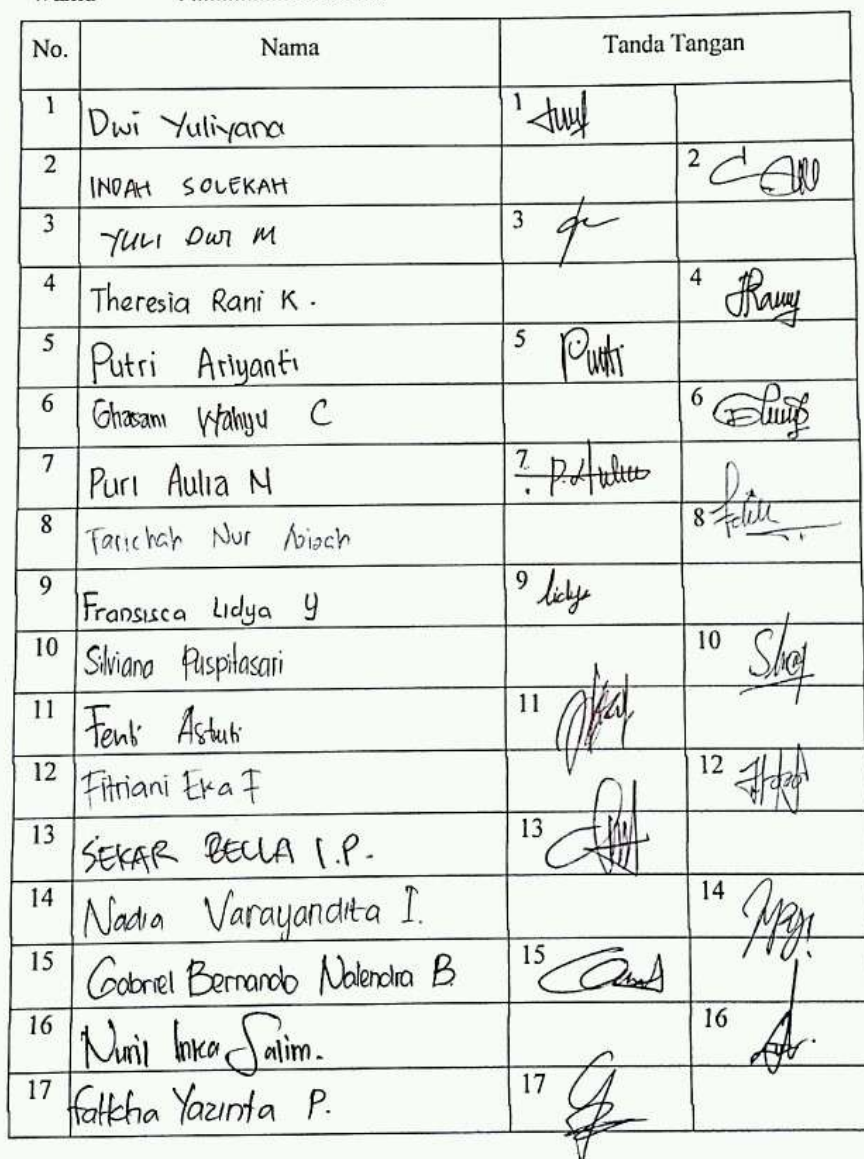 No. Nama Tanda Tangan
1 Dwi Yuliyana 1
2 INDAH SOLEKAH 2
3 YULI DWI M 3
4 Theresia Rani K. 4
5 Putri Ariyanti 5 Putri
6 Ghasani Wahyu C 6
7 Puri Aulia N 7.
8 Farichah Nur 8
9 Fransisca Lidya Y 9 lidya
10 Silviana Puspitasari 10
11 Fenti Astuti 11
12 Fitriani Eka F 12
13 SEKAR BELLA I.P. 13
14 Nadia Varayandita I. 14
15 Gabriel Bernando Nalendra B. 15
16 Nuril Inka Salim. 16
17 Yazinta P. 17